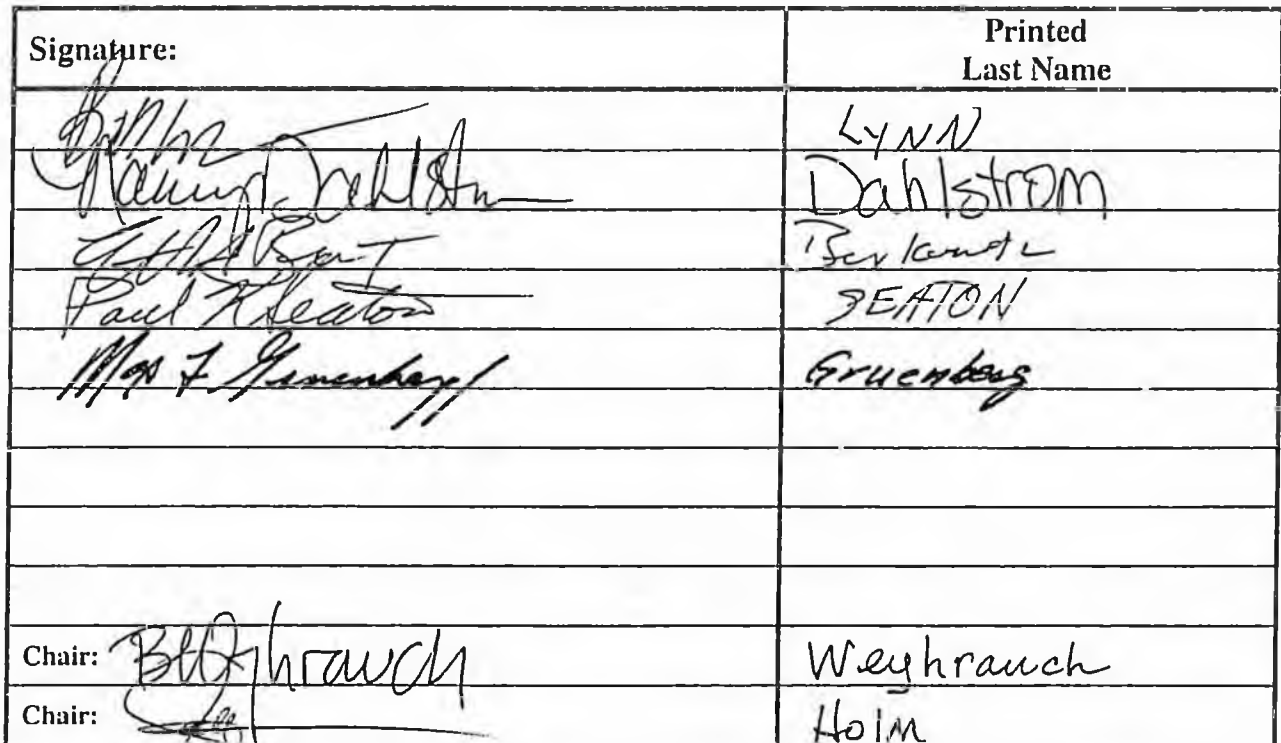 Signature:
Printed
Last Name
LYNN
Nancy Dahlstrom
Dahlstrom
Berkowitz
Paul K Seaton
SEATON
Max F Gruenberg
Gruenberg
Chair:
Weyhrauch
Chair:
Holm